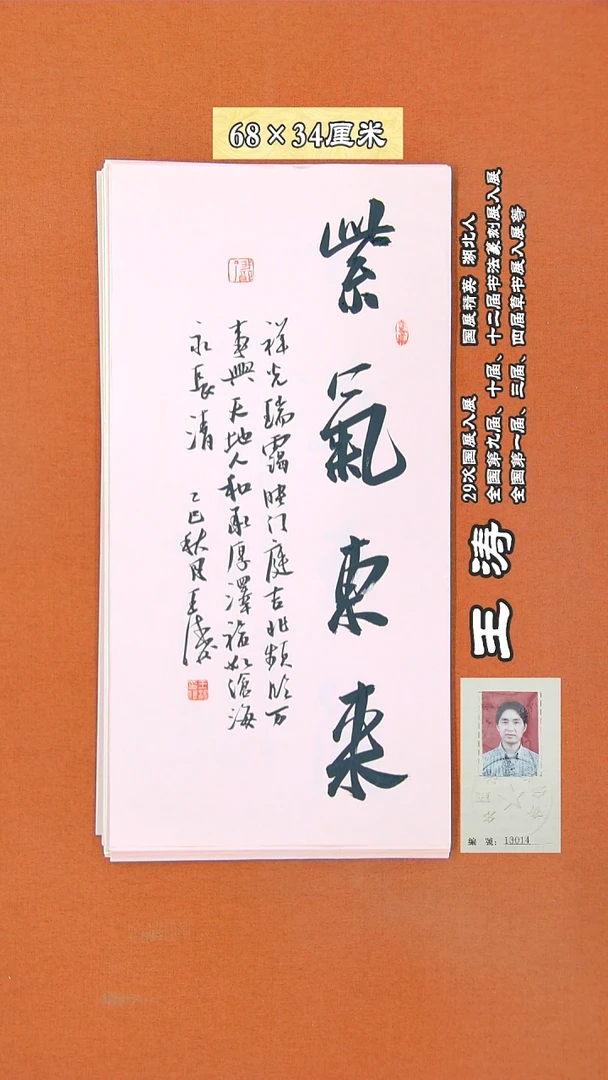 68×34厘米
紫氣東來
祥光瑞靄映门庭吉兆頻臨万
事興天地人和承厚澤福如滄海
永長清
乙巳秋月王涛
国展精英 湖北人
29次国展入展
全国第九届、十届、十二届书法篆刻展入展
全国第一届、三届、四届草书展入展等
王涛
编號：13014